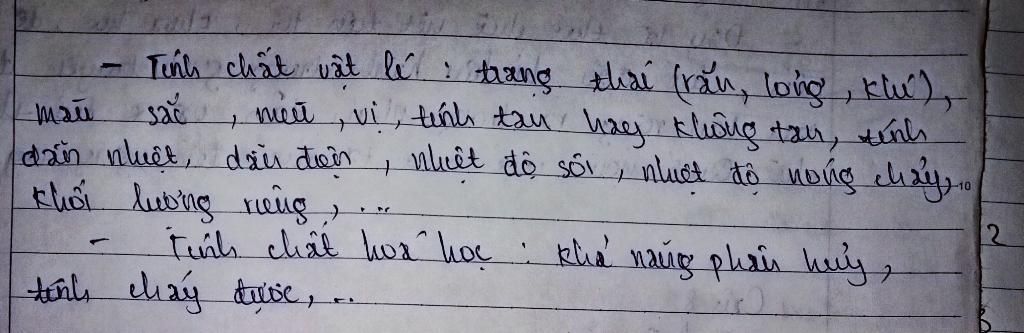 - Tính chất vật lí : trạng thái (rắn, lỏng, khí),
màu sắc, mùi, vị, tính tan hay không tan, tính
dẫn nhiệt, dẫn điện, nhiệt độ sôi, nhiệt độ nóng chảy,
khối lượng riêng, ...
- Tính chất hoá học : khả năng phân huỷ,
tính cháy được, ...